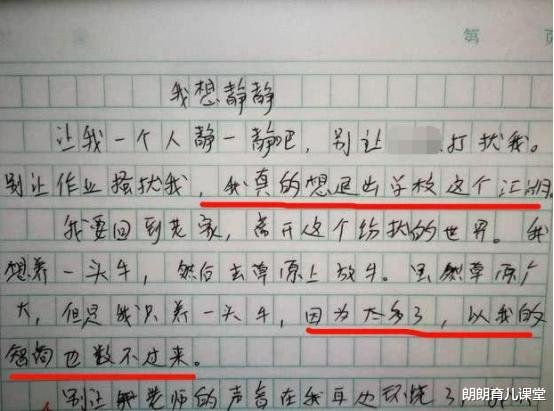 第 页
我想静静
让我一个人静一静吧，别让 打扰我。
别让作业骚扰我，我真的想退出学校这个江湖。
我要回到老家，离开这个纷扰的世界。我
想养一头牛，然后去草原上放牛。虽然草原广
大，但是我只养一头牛，因为太多了，以我的
智商也数不过来。
别让 老师的声音在我耳边环绕了
朗朗育儿课堂